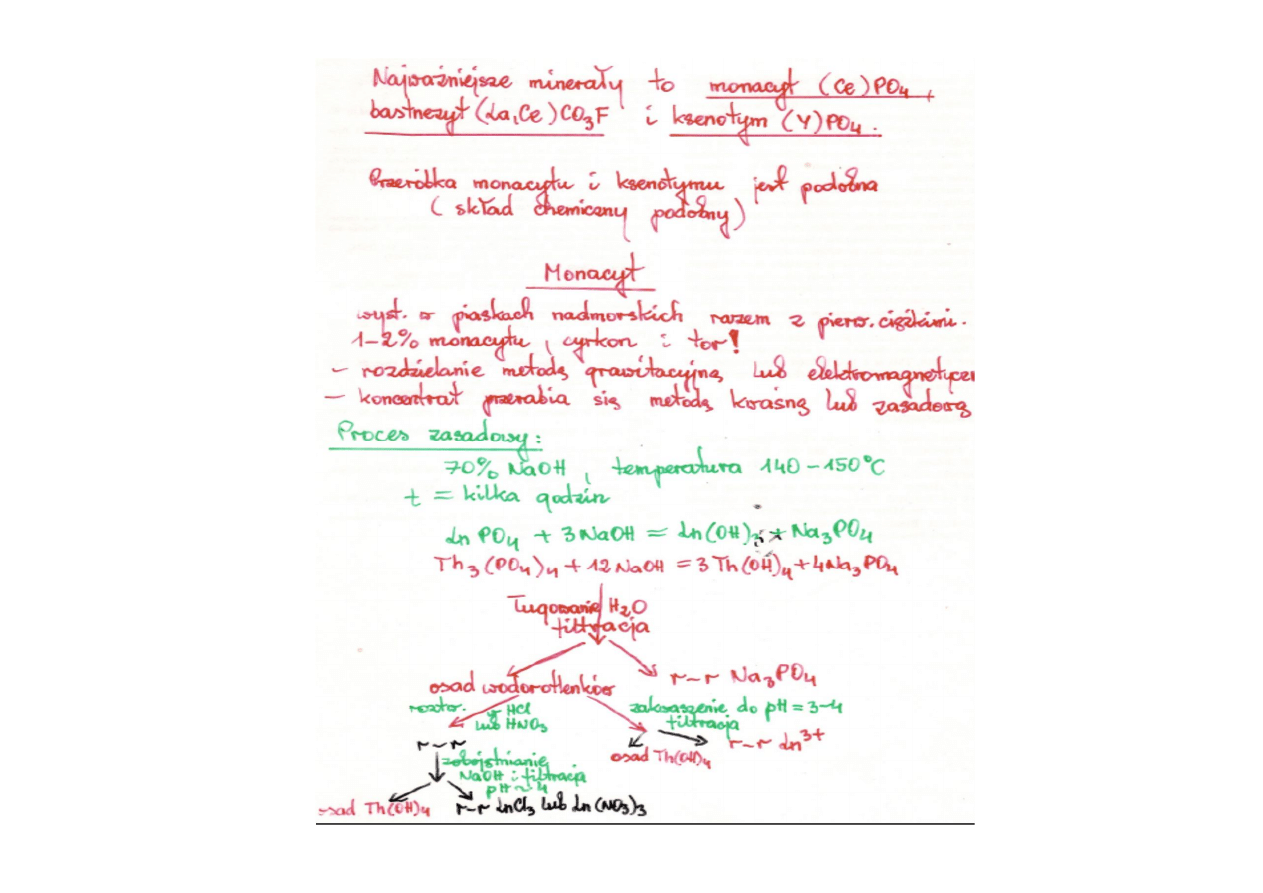 Najważniejsze minerały to monacyt (Ce)PO₄,
bastnezyt (La,Ce)CO₃F i ksenotym (Y)PO₄.
Przeróbka monacytu i ksenotymu jest podobna
(skład chemiczny podobny)
Monacyt
wyst. w piaskach nadmorskich razem z pierw. ciężkimi.
1-2% monacytu, cyrkon i tor!
- rozdzielanie metodą grawitacyjną lub elektromagnetyczn
- koncentrat przerabia się metodą kwaśną lub zasadową
Proces zasadowy:
70% NaOH, temperatura 140-150°C
t = kilka godzin
LnPO₄ + 3NaOH = Ln(OH)₃ + Na₃PO₄
Th₃(PO₄)₄ + 12NaOH = 3Th(OH)₄ + 4Na₃PO₄
Ługowanie H₂O
filtracja
r-r Na₃PO₄
osad wodorotlenków
roztw. w HCl
lub HNO₃
zakwaszenie do pH = 3-4
filtracja
r-r
osad Th(OH)₄
r-r Ln³⁺
zobojętnianie
NaOH i filtracja
pH ~ 4
osad Th(OH)₄
r-r LnCl₃ lub Ln(NO₃)₃